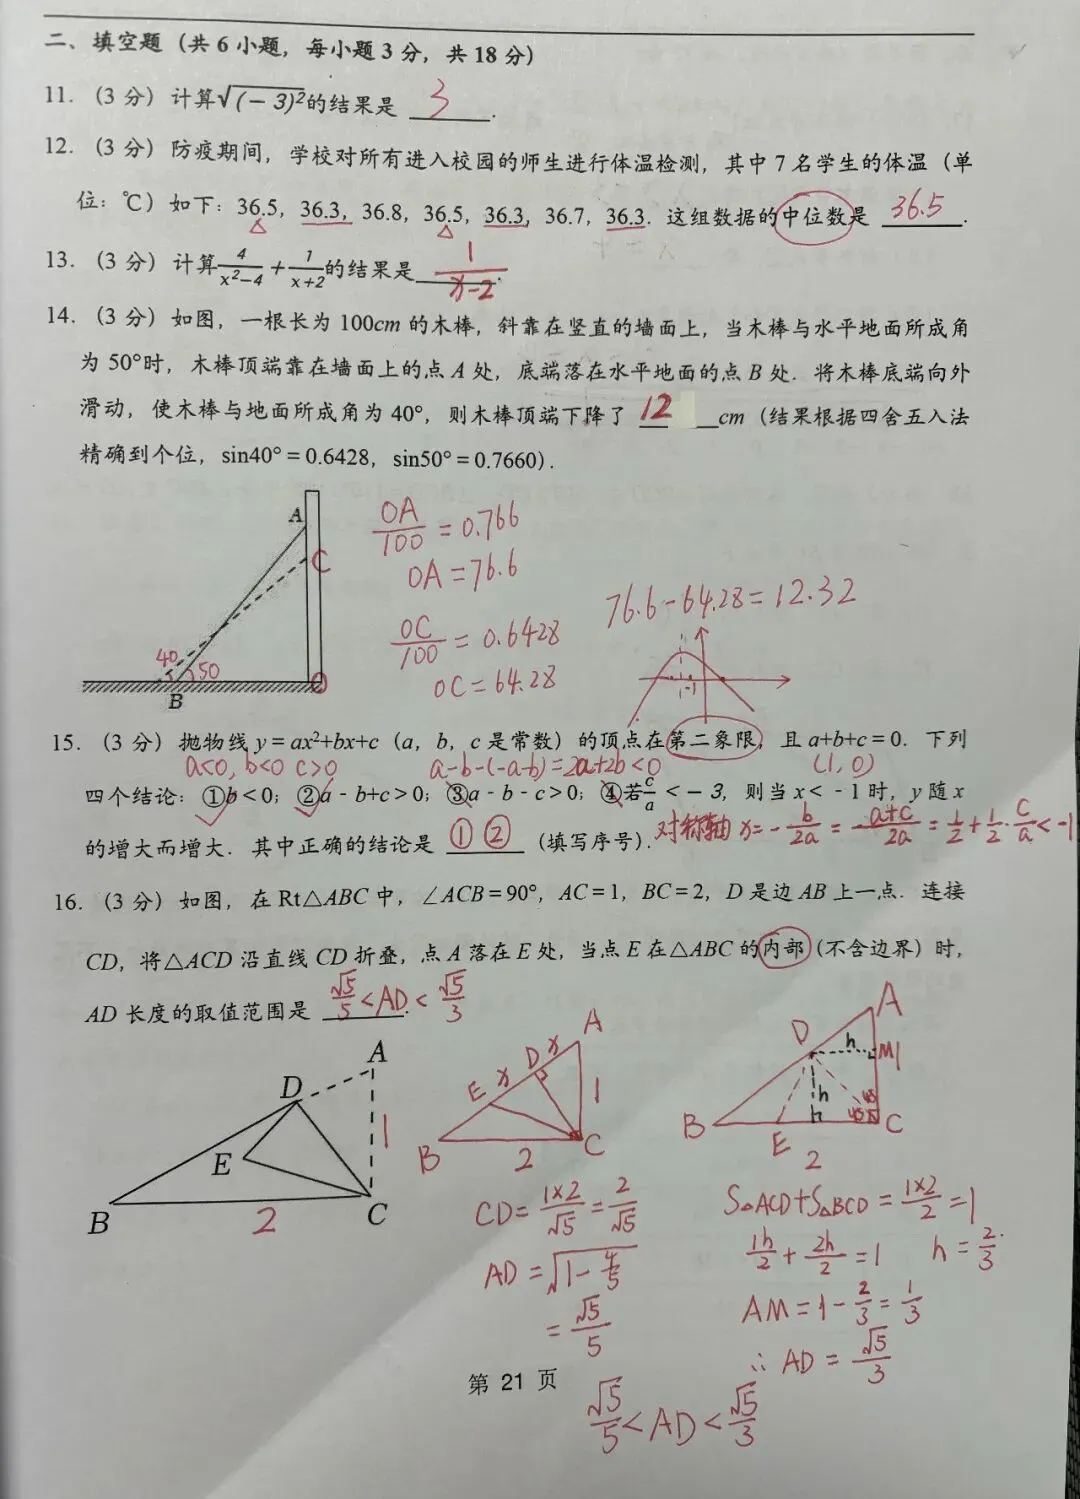 二、填空题（共6小题，每小题3分，共18分）
11.（3分）计算√(-3)²的结果是 3 .
12.（3分）防疫期间，学校对所有进入校园的师生进行体温检测，其中7名学生的体温（单
位：℃）如下：36.5，36.3，36.8，36.5，36.3，36.7，36.3．这组数据的中位数是 36.5 .
13.（3分）计算4/(x²-4)+1/(x+2)的结果是 1/(x-2) .
14.（3分）如图，一根长为100cm的木棒，斜靠在竖直的墙面上，当木棒与水平地面所成角
为50°时，木棒顶端靠在墙面上的点A处，底端落在水平地面的点B处．将木棒底端向外
滑动，使木棒与地面所成角为40°，则木棒顶端下降了 12 cm（结果根据四舍五入法
精确到个位，sin40°=0.6428，sin50°=0.7660）.
A
C
40
50
O
B
OA/100=0.766
OA=76.6
OC/100=0.6428
OC=64.28
76.6-64.28=12.32
-1
15.（3分）抛物线y=ax²+bx+c（a，b，c是常数）的顶点在第二象限，且a+b+c=0．下列
a<0, b<0 c>0
a-b-(-a-b)=2a+2b<0
(1,0)
四个结论：①b<0；②a-b+c>0；③a-b-c>0；④若c/a<-3，则当x<-1时，y随x
的增大而增大．其中正确的结论是 ①② （填写序号）.
对称轴 x=-b/2a=-a+c/2a=1/2+1/2·c/a<-1
16.（3分）如图，在Rt△ABC中，∠ACB=90°，AC=1，BC=2，D是边AB上一点．连接
CD，将△ACD沿直线CD折叠，点A落在E处，当点E在△ABC的内部（不含边界）时，
AD长度的取值范围是 √5/5<AD<√5/3 .
A
D
E
1
B
2
C
A
x
D
x
E
1
B
2
C
A
D
h
M
1
h
45
45
B
E
C
2
CD=1×2/√5=2/√5
AD=√(1-4/5)
=√5/5
S△ACD+S△BCD=1×2/2=1
1h/2+2h/2=1 h=2/3
AM=1-2/3=1/3
∴AD=√5/3
第 21 页
√5/5<AD<√5/3